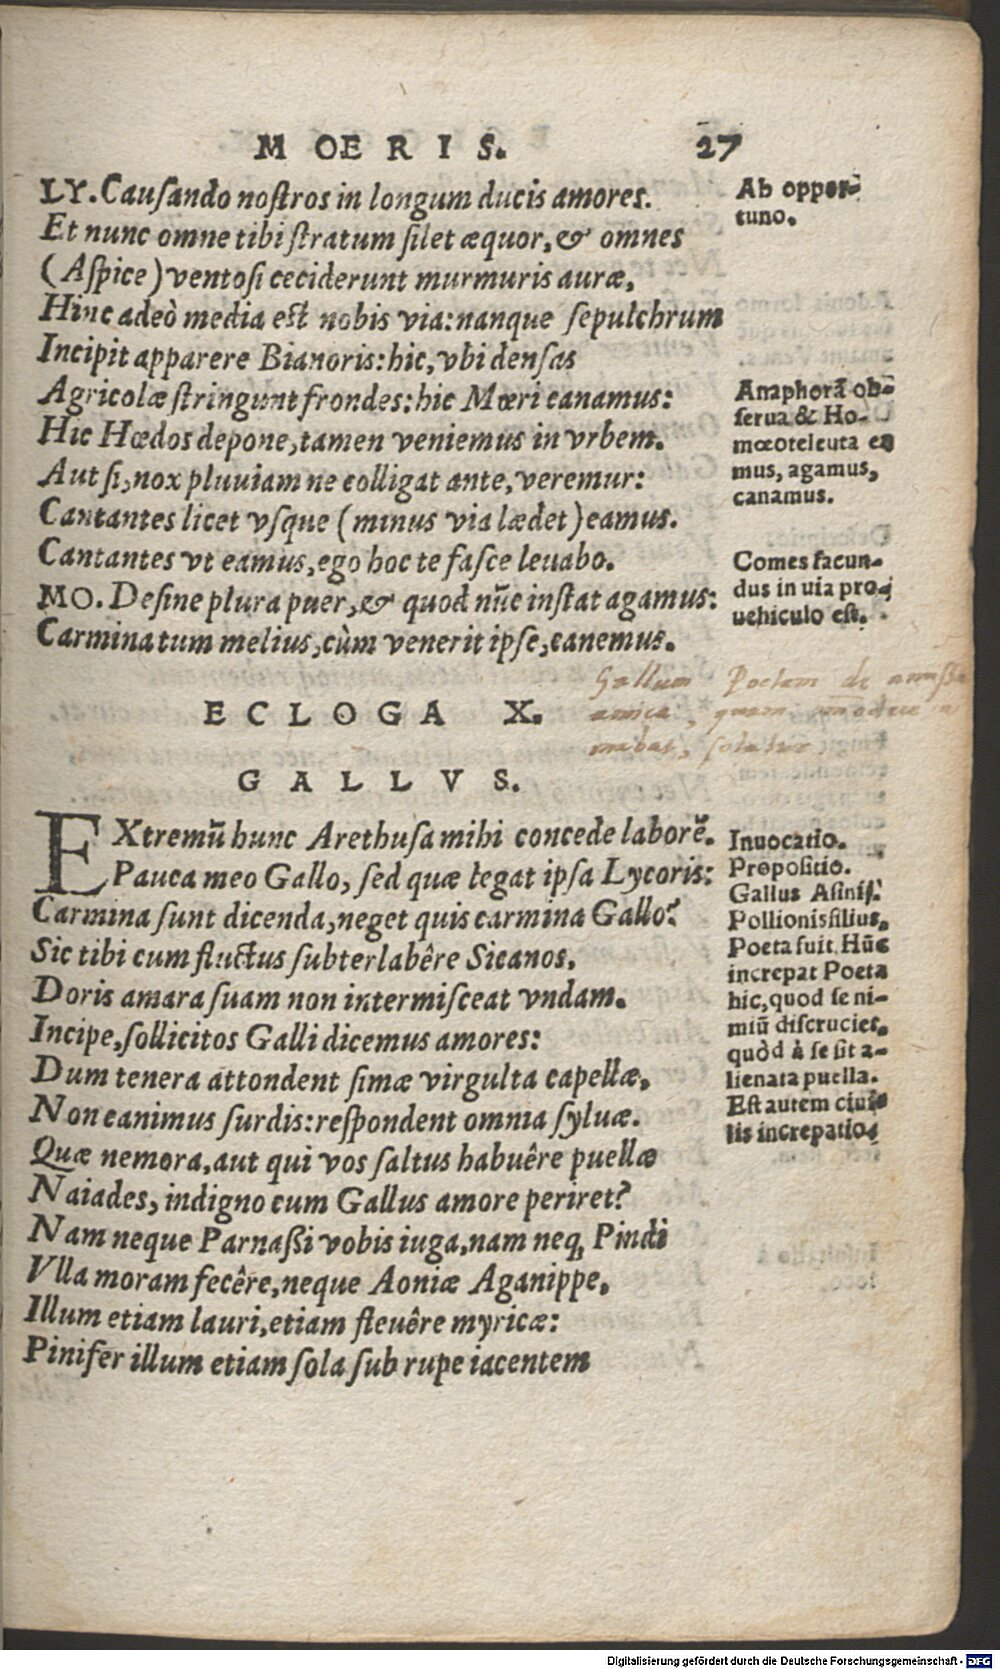 MOERIS. 27
LY. Cauſando noſtros in longum ducis amores.
Et nunc omne tibi ſtratum ſilet æquor, & omnes
(Aſpice) ventoſi ceciderunt murmuris auræ,
Hinc adeò media eſt nobis via: nanque ſepulchrum
Incipit apparere Bianoris: hic, vbi denſas
Agricolæ ſtringunt frondes: hic Mœri canamus:
Hic Hœdos depone, tamen veniemus in vrbem.
Aut ſi, nox pluuiam ne colligat ante, veremur:
Cantantes licet vſque (minus via lædet) eamus.
Cantantes vt eamus, ego hoc te faſce leuabo.
MO. Deſine plura puer, & quod nũc inſtat agamus:
Carmina tum melius, cùm venerit ipſe, canemus.
Ab oppor-
tuno.
Anaphorã ob-
ſerua & Ho-
mœoteleuta ea
mus, agamus,
canamus.
Comes facun-
dus in uia pro
uehiculo eſt.
Gallum Poetam de amiſſa
amica, quam
mabat, ſolatur
ECLOGA X.
GALLVS.
EXtremũ hunc Arethuſa mihi concede laborẽ.
Pauca meo Gallo, ſed quæ legat ipſa Lycoris:
Carmina ſunt dicenda, neget quis carmina Gallo?
Sic tibi cum fluctus ſubterlabêre Sicanos,
Doris amara ſuam non intermiſceat vndam.
Incipe, ſollicitos Galli dicemus amores:
Dum tenera attondent ſimæ virgulta capellæ,
Non canimus ſurdis: reſpondent omnia ſyluæ.
Quæ nemora, aut qui vos ſaltus habuêre puellæ
Naiades, indigno cum Gallus amore periret?
Nam neque Parnaßi vobis iuga, nam neq; Pindi
Vlla moram fecêre, neque Aoniæ Aganippe,
Illum etiam lauri, etiam fleuêre myricæ:
Pinifer illum etiam ſola ſub rupe iacentem
Inuocatio.
Propoſitio.
Gallus Aſinij
Pollionis filius,
Poeta fuit. Hũc
increpat Poeta
hic, quod ſe ni-
miũ diſcruciet,
quòd à ſe ſit a-
lienata puella.
Eſt autem ciui
lis increpatio.
Digitalisierung gefördert durch die Deutsche Forschungsgemeinschaft - DFG